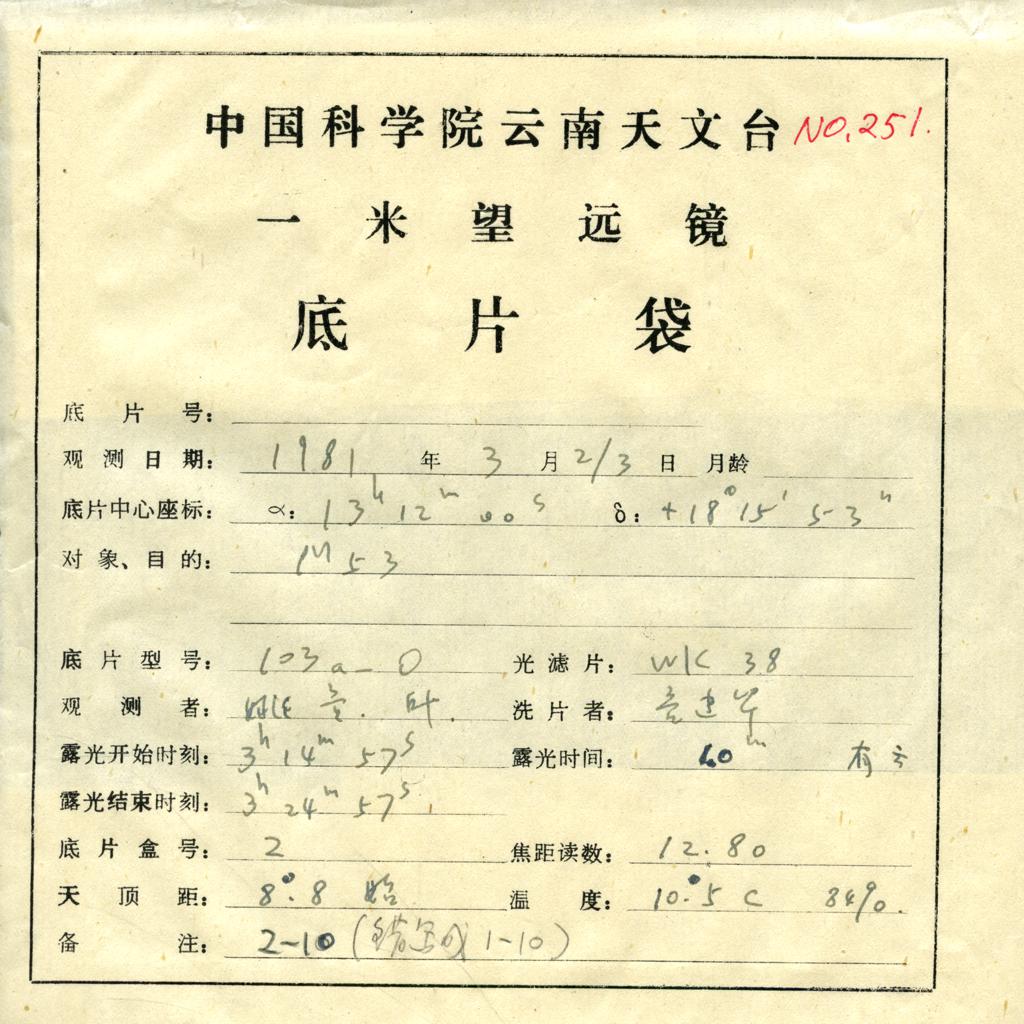 中国科学院云南天文台 NO.251.
一米望远镜
底片袋
底片号:
观测日期: 1981 年 3 月 2/3 日 月龄
底片中心座标: α: 13h 12m 00s δ: +18° 15′ 53″
对象、目的: M 53
底片型号: 103a-O 光滤片: WK 38
观测者: 叶. 洗片者:
露光开始时刻: 3h 14m 57s 露光时间: 10m 有云
露光结束时刻: 3h 24m 57s
底片盒号: 2 焦距读数: 12.80
天顶距: 8°.8 始 温度: 10°.5 C 84%.
备注: 2-10 (错写成 1-10)